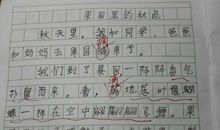 果园里的秋色
秋天里，我和同学、爸爸
和妈妈去果园摘果子。
我们到了果园一阵阵香气
扑鼻而来。看，落叶像蝴
蝶一样在空中翩翩飞舞。果